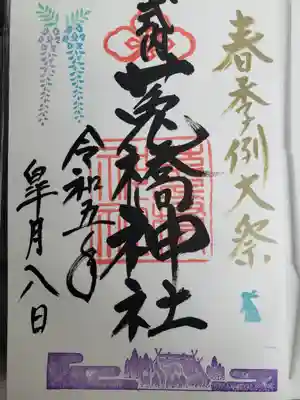 春季例大祭
式内
菟橋神社
令和五年
皐月八日